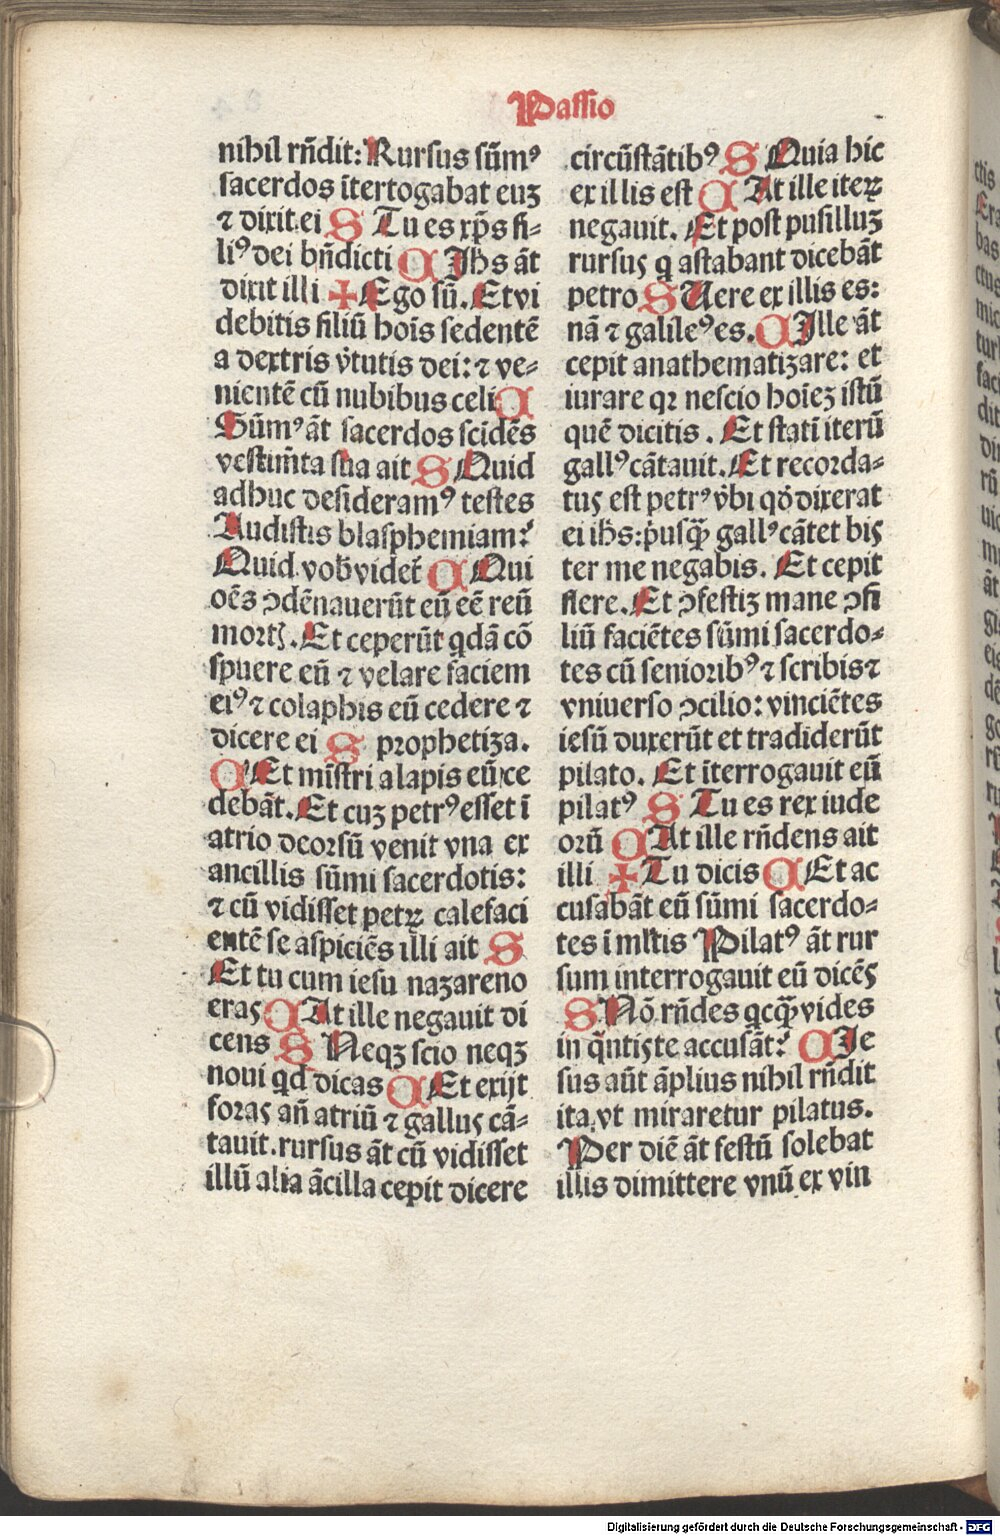 Passio
nihil rñdit: Rursus sūmꝰ
sacerdos ītertogabat euꝫ
⁊ dixit ei S Tu es xp̄s fi⸗
liꝰ dei bñdicti C Jhs āt
dixit illi ✠ Ego sū. Et vi
debitis filiū hoīs sedentē
a dextris v̓tutis dei: ⁊ ve⸗
nientē cū nubibus celi C
Sūmꝰ āt sacerdos scidēs
vestim̄ta sua ait S Quid
adhuc desideramꝰ testes
Audistis blasphemiam:̓
Quid vob̄ videt̄ C Qui
oēs ↄdēnauerūt eū eē reū
mortꝭ. Et ceperūt qdā cō
spuere eū ⁊ velare faciem
eiꝰ ⁊ colaphis eū cedere ⁊
dicere ei S prophetiza.
C Et mīstri alapis eū ce
debāt. Et cuꝫ petrꝰ esset ī
atrio deorsū venit vna ex
ancillis sūmi sacerdotis:
⁊ cū vidisset petꝝ calefaci
entē se aspiciēs illi ait S
Et tu cum iesu nazareno
eras C At ille negauit di
cens S Neqꝫ scio neqꝫ
noui qd dicas C Et exijt
foras añ atriū ⁊ gallus cā⸗
tauit. rursus āt cū vidisset
illū alia ācilla cepit dicere
circūstātibꝰ S Quia hic
ex illis est C At ille iteꝝ
negauit. Et post pusilluꝫ
rursus q astabant dicebāt
petro S Uere ex illis es:
nā ⁊ galileꝰ es. C Ille āt
cepit anathematizare: et
iurare qꝛ nescio hoīeꝫ istū
quē dicitis. Et statī iterū
gallꝰ cātauit. Et recorda⸗
tus est petrꝰ v̓bi qd̓ dixerat
ei ihs: p̓usqꝫ̄ gallꝰ cātet bis
ter me negabis. Et cepit
flere. Et ↄfestiꝫ mane ↄsi
liū faciētes sūmi sacerdo⸗
tes cū senioribꝰ ⁊ scribis ⁊
vniuerso ↄcilio: vinciētes
iesū duxerūt et tradiderūt
pilato. Et īterrogauit eū
pilatꝰ S Tu es rex iude
orū C At ille rñdens ait
illi ✠ Tu dicis C Et ac
cusabāt eū sūmi sacerdo⸗
tes ī ml̄tis Pilatꝰ āt rur
sum interrogauit eū dicēs
S Nō rñdes qcqꝫ̄ vides
in q̄ntis te accusāt:̓ C Je
sus aūt āplius nihil rñdit
ita vt miraretur pilatus.
Per diē āt festū solebat
illis dimittere vnū ex vin
Digitalisierung gefördert durch die Deutsche Forschungsgemeinschaft - DFG